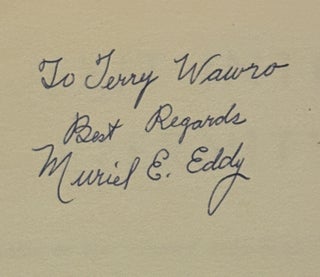 To Terry Wawro
Best Regards
Muriel E. Eddy